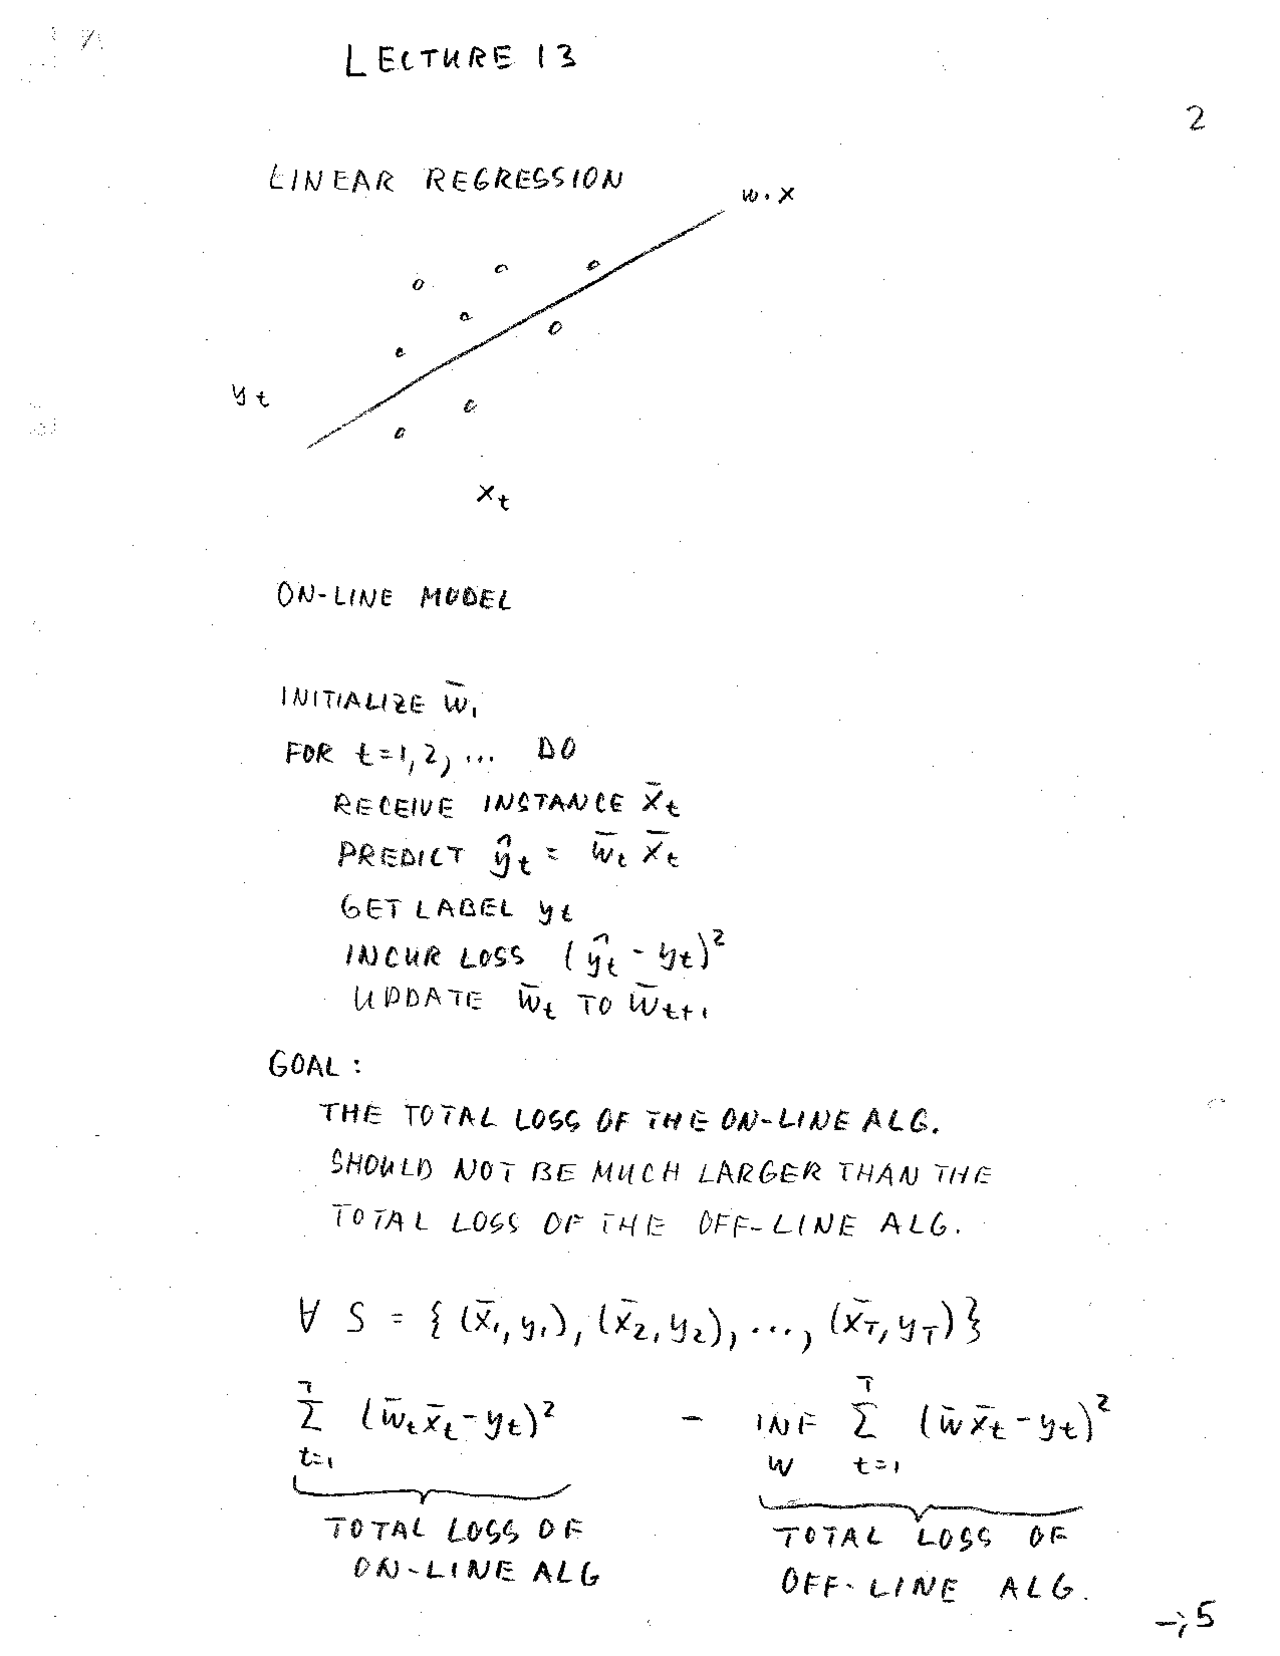 LECTURE 13
2
LINEAR REGRESSION
w·x
y_t
x_t
ON-LINE MODEL
INITIALIZE w̄₁
FOR t=1,2, ... DO
RECEIVE INSTANCE x̄_t
PREDICT ŷ_t = w̄_t x̄_t
GET LABEL y_t
INCUR LOSS (ŷ_t - y_t)²
UPDATE w̄_t TO w̄_{t+1}
GOAL :
THE TOTAL LOSS OF THE ON-LINE ALG.
SHOULD NOT BE MUCH LARGER THAN THE
TOTAL LOSS OF THE OFF-LINE ALG.
∀ S = { (x̄₁, y₁), (x̄₂, y₂), ..., (x̄_T, y_T) }
∑_{t=1}^{T} (w̄_t x̄_t - y_t)² - INF_W ∑_{t=1}^{T} (w̄ x̄_t - y_t)²
TOTAL LOSS OF ON-LINE ALG
TOTAL LOSS OF OFF-LINE ALG.
→; 5